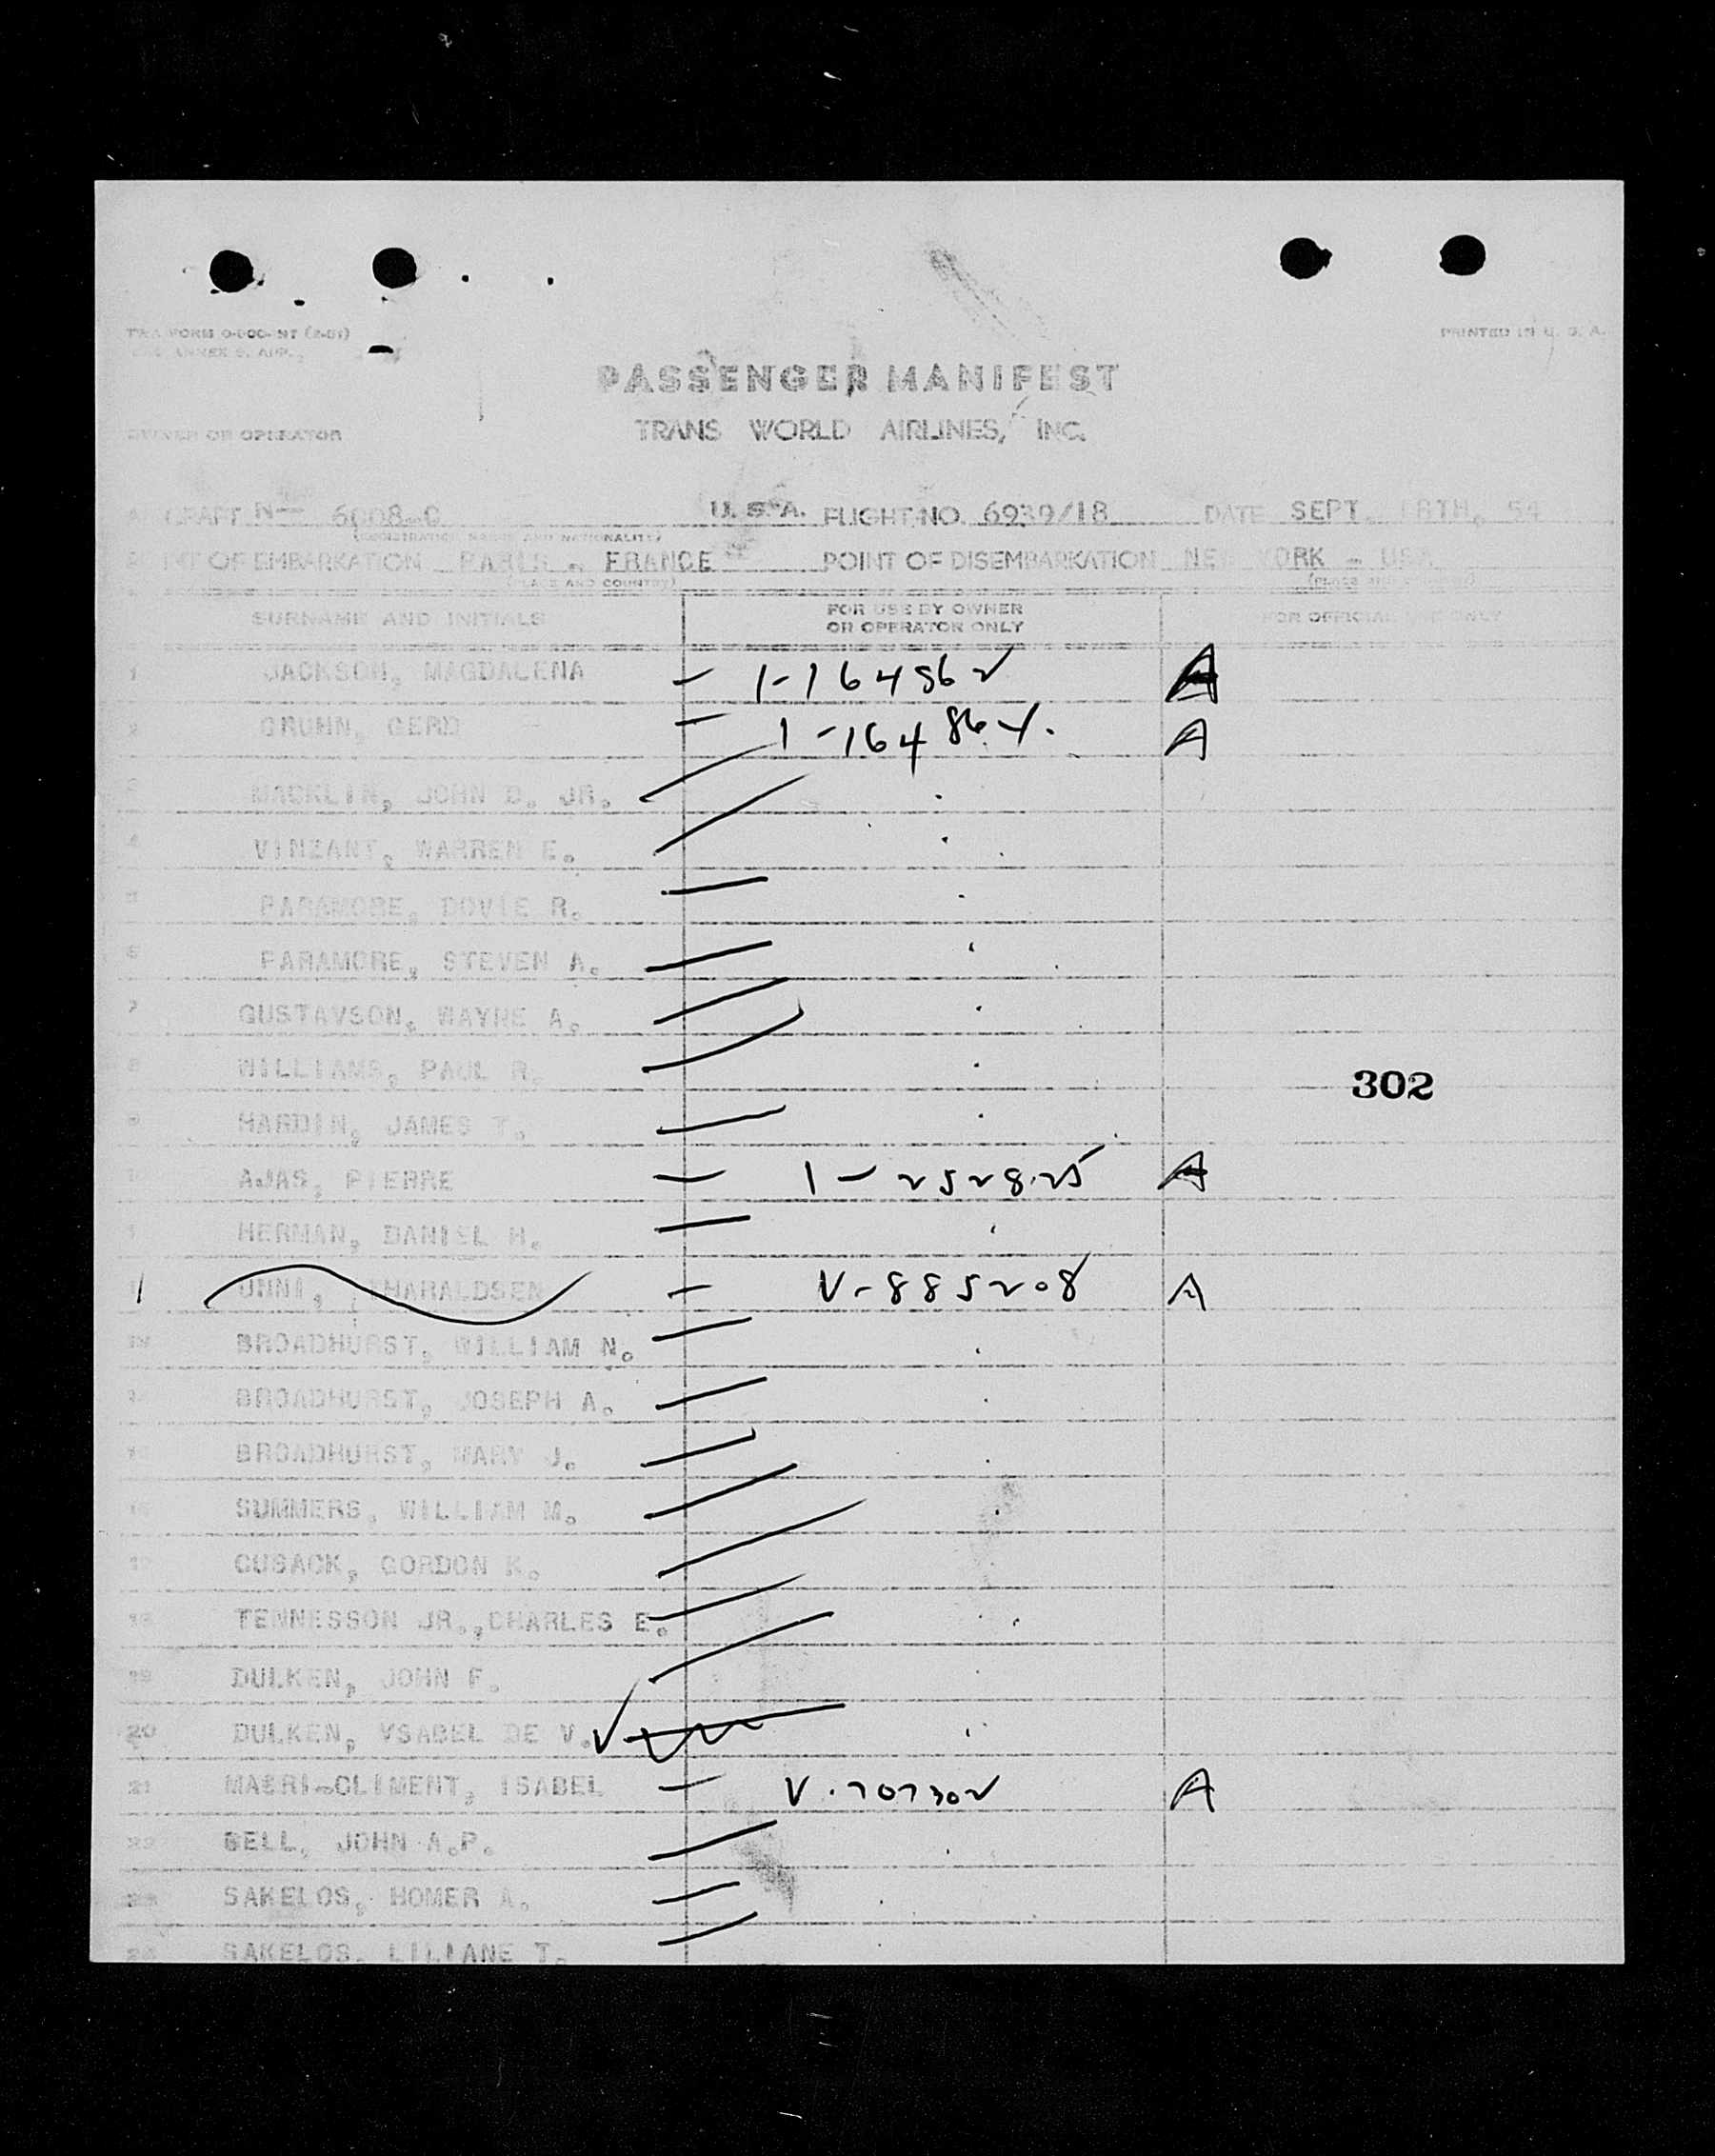 PRINTED IN U. S. A.
PASSENGER MANIFEST
OWNER OR OPERATOR
TRANS WORLD AIRLINES, INC.
AIRCRAFT N— 6008-C U. S. A. FLIGHT NO. 6939/18 DATE SEPT. 54
(REGISTRATION MARKS AND NATIONALITY)
POINT OF EMBARKATION PARIS - FRANCE POINT OF DISEMBARKATION NEW YORK - USA
(PLACE AND COUNTRY) (PLACE AND COUNTRY)
SURNAME AND INITIALS FOR USE BY OWNER OR OPERATOR ONLY FOR OFFICIAL USE ONLY
1 JACKSON, MAGDALENA — A
2 GRUHN, GERD — A
3 MACKLIN, JOHN D. JR.
4 VINZANT, WARREN E.
5 PARAMORE, DOVIE R.
6 PARAMORE, STEVEN A.
7 GUSTAVSON, WAYNE A.
8 WILLIAMS, PAUL R.
302
9 HARDIN, JAMES T.
10 AJAS, PIERRE — 1-252825 A
11 HERMAN, DANIEL H.
1 UNNI, THARALDSEN — V-885208 A
13 BROADHURST, WILLIAM N.
14 BROADHURST, JOSEPH A.
15 BROADHURST, MARY J.
16 SUMMERS, WILLIAM M.
17 CUSACK, GORDON K.
18 TENNESSON JR.,CHARLES E.
19 DULKEN, JOHN F.
20 DULKEN, YSABEL DE V.
21 ISABEL — V.707302 A
22 BELL, JOHN A.P.
23 SAKELOS, HOMER A.
24 SAKELOS, LILIANE T.